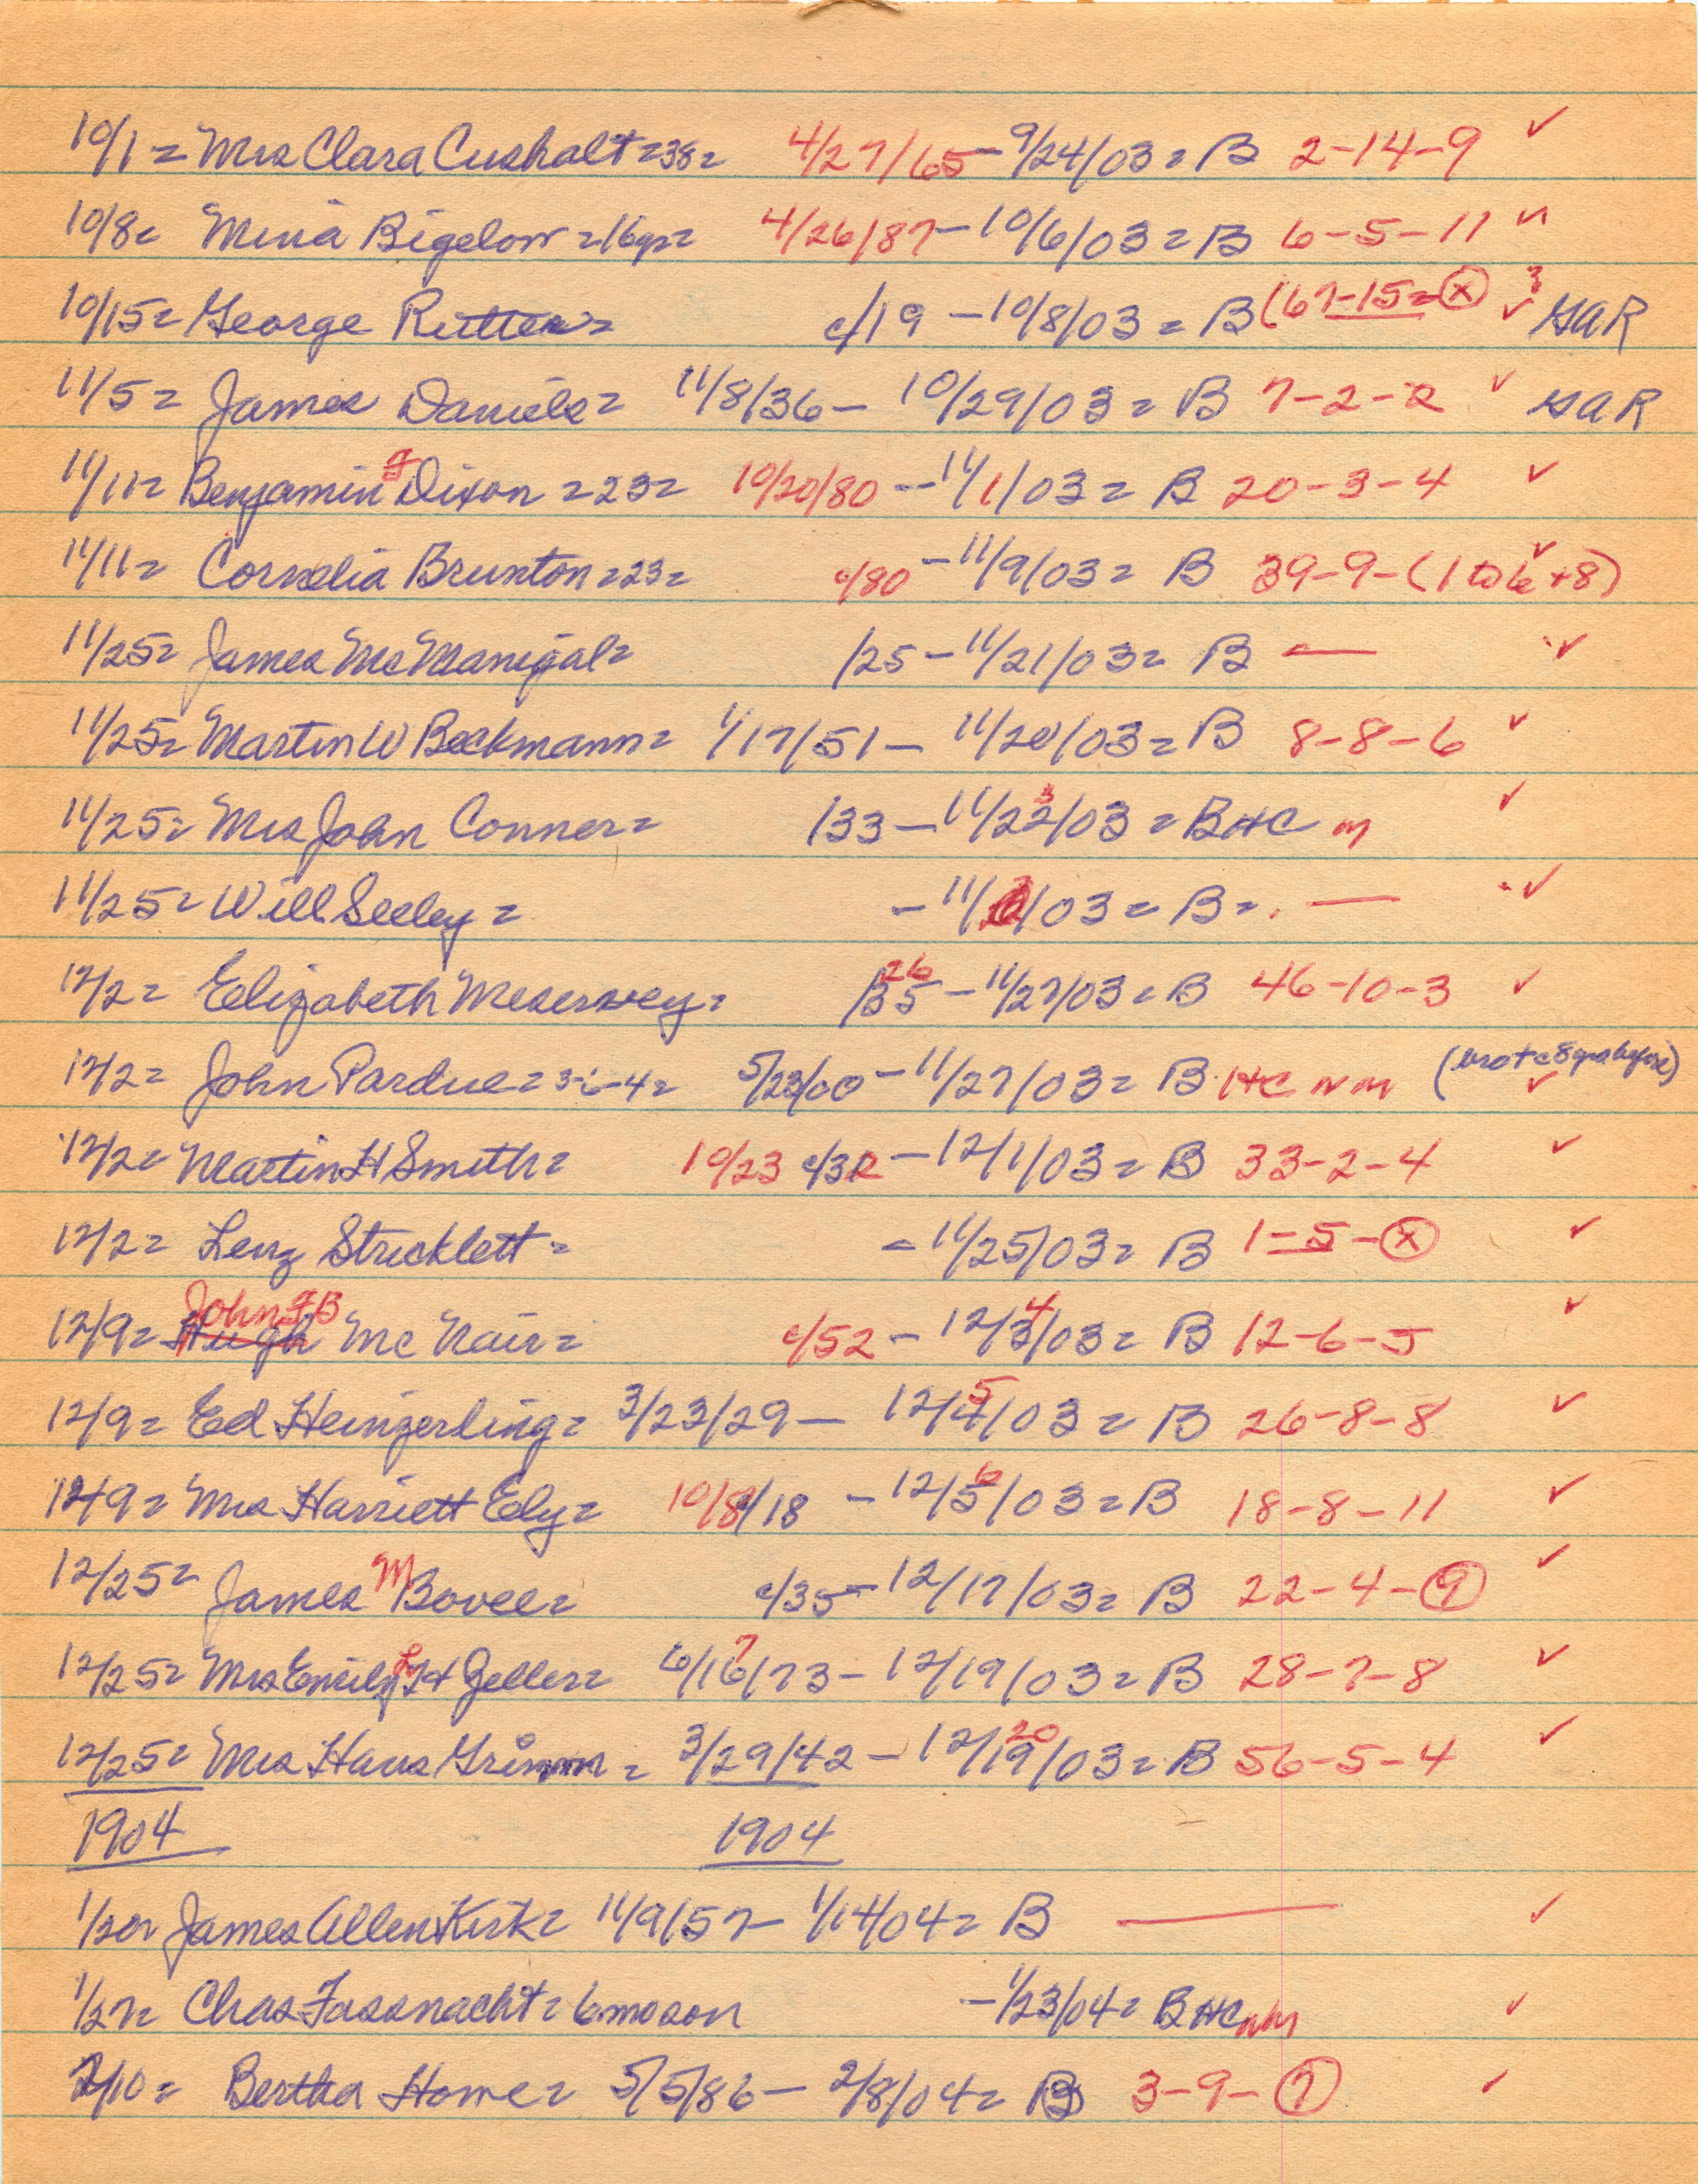 10/1= Mrs Clara Cushalt=38= 4/27/65-9/24/03= B 2-14-9 ✓
10/8= Minia Bigelow=16yr= 4/26/87-10/6/03= B 6-5-11
10/15= George Rutten= c/19 -10/8/03= B (67-15= x ? ✓ GAR
11/5= James Daniels= 11/8/36- 10/29/03= B 7-2-2 ✓ GAR
11/11= Benjamin F Dixon =23= 10/20/80 -11/1/03= B 20-3-4 ✓
11/11= Cornelia Brunton=23= c/80 -11/9/03= B 39-9-(1 to 6+8) ✓
11/25= James McManigal= /25-11/21/03= B — ✓
11/25= Martin W Beckmann= 1/17/51- 11/20/03= B 8-8-6 ✓
11/25= Mrs John Conner= /33-11/22 3/03= B HC m ✓
11/25= Will Seeley= -11/ /03= B= — ✓
12/2= Elizabeth Meservey= /35 26 -11/27/03= B 46-10-3 ✓
12/2= John Pardue=3-6-4= 5/23/00-11/27/03= B HC nm ✓
12/2= Martin H Smith= 10/23 c/32-12/1/03= B 33-2-4 ✓
12/2= Lenz Stricklett= -11/25/03= B 1-5- x ✓
12/9= Hugh John FB McNair= c/52-12/3 4/03= B 12-6-5 ✓
12/9= Ed Heinzerling= 3/23/29- 12/4 5/03= B 26-8-8 ✓
12/9= Mrs Harriett Ely= 10/8/18 -12/5 6/03= B 18-8-11 ✓
12/25= James M Bovee= c/35-12/17/03= B 22-4-9 ✓
12/25= Mrs Emily H Zeller= 6/16 7/73-12/19/03= B 28-7-8 ✓
12/25= Mrs Hans Grimm= 3/29/42-12/19 20/03= B 56-5-4 ✓
1904 1904
1/20= James Allen Kirk= 11/9/57-1/14/04= B — ✓
1/27= Chas Fassnacht= 6mo son -1/23/04= B HC nm ✓
2/10= Bertha Horne= 5/5/86- 2/8/04= B 3-9-7 ✓